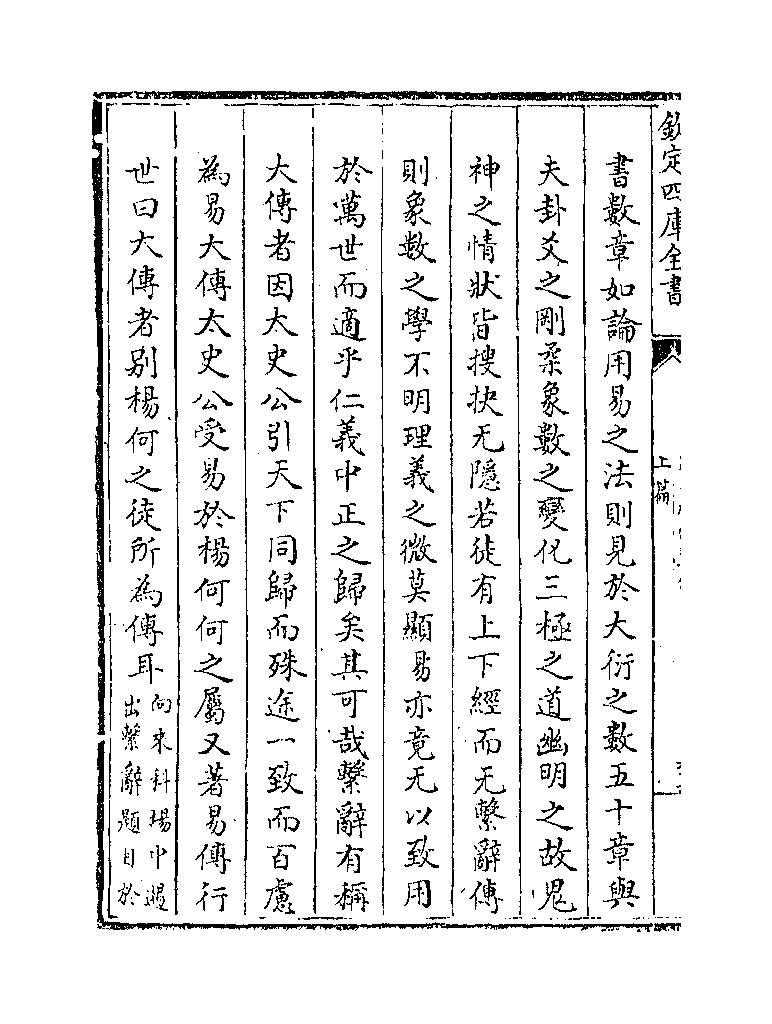 欽定四庫全書
上篇
書數章如論用易之法則見於大衍之數五十章與
夫卦爻之剛柔象數之變化三極之道幽明之故鬼
神之情狀皆搜抉无隱若徒有上下經而无繫辭傳
則象數之學不明理義之微莫顯易亦竟无以致用
於萬世而適乎仁義中正之歸矣其可哉繫辭有稱
大傳者因太史公引天下同歸而殊途一致而百慮
為易大傳太史公受易於楊何何之屬又著易傳行
世曰大傳者别楊何之徒所為傳耳
向來科場中遇
出繫辭題目於